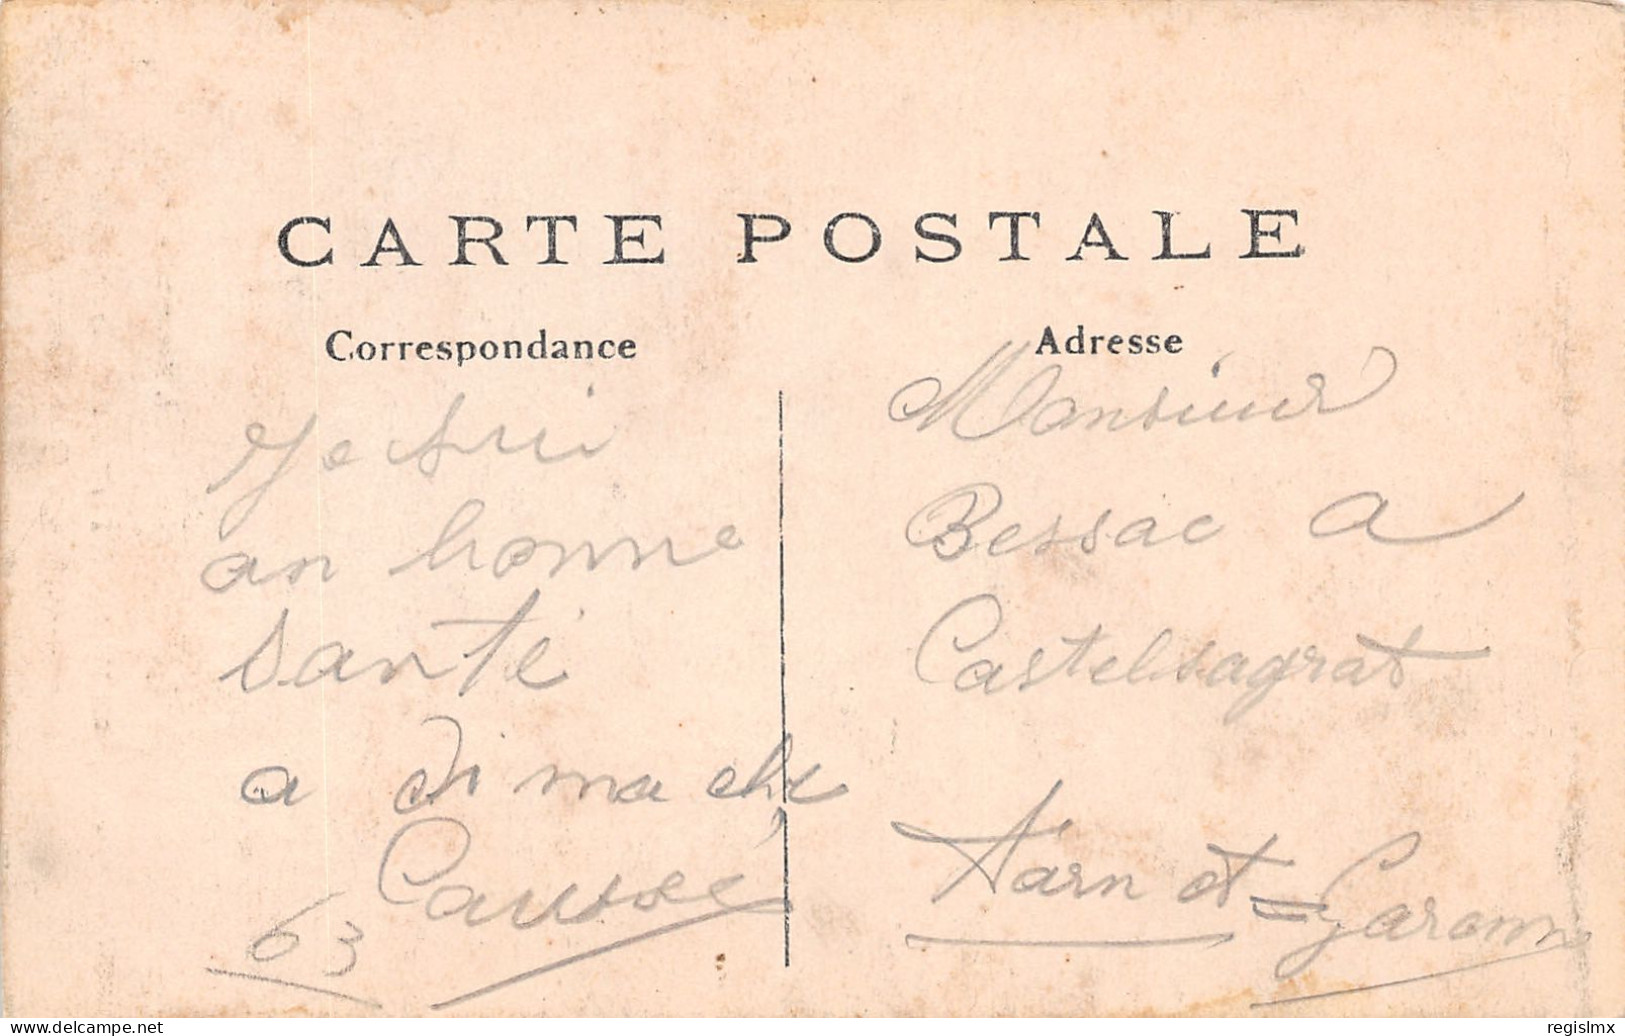 CARTE POSTALE
Correspondance
Je sui
an bonne
santé
a di ma che
Caussé
63
Adresse
Monsieur
Bessac a
Castelsagrat
Tarn et=Garonne
delcampe.net
regislmx